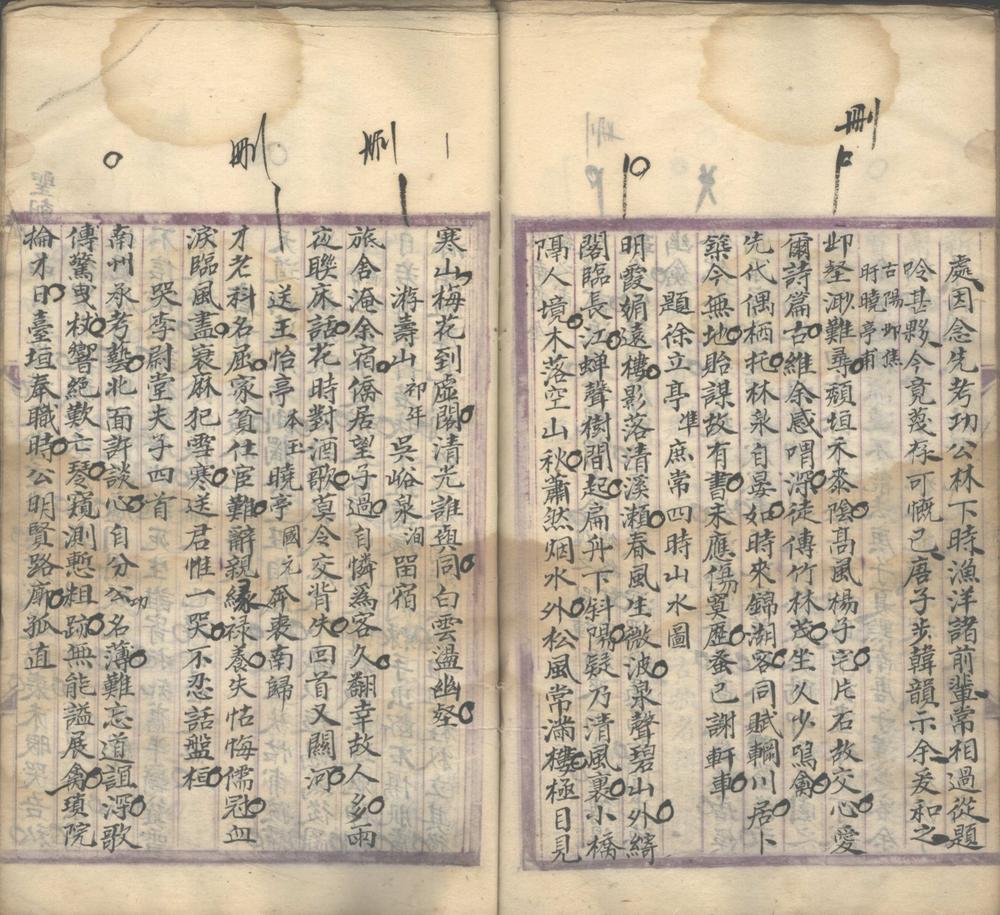 處因念先考功公林下時漁洋諸前輩常相過從題
唫甚夥今竟蔑存可慨已唐子步韓韻示余爰和之
古陽邱焦
盱曉亭甫
刪
邱壑渺難尋頹垣禾黍陰高風楊子宅片石故交心愛
爾詩篇古維余感喟深徒傳竹林茂坐久少鳴禽
先代偶栖托林泉自晏如時來錦湖客同賦輞川居卜
築今無地貽謀故有書未應傷寞歷蚤已謝軒車
題徐立亭準庶常四時山水圖
明霞媚遠樓影落清溪瀨春風生微波泉聲碧山外綺
閣臨長江蟬聲樹間起扁舟下斜陽疑乃清風裏小橋
隔人境木落空山秋蕭然烟水外松風常滿樓極目見
寒山梅花到虛閣清光誰與同白雲溫幽壑
刪
游壽山祁年吳峪泉洵留宿
旅舍淹余宿僑居望子過自憐為客久翻幸故人多雨
夜聯床話花時對酒歌莫令交背失回首又關河
刪
送王怡亭本玉曉亭國元奔喪南歸
才老科名屈家貧仕宦難辭親緣祿養失怙悔儒冠血
淚臨風盡衰麻犯雪寒送君惟一哭不忍話盤桓
哭李尉堂夫子四首
南州承考藝北面許談心自分功名薄難忘道誼深歌
傳驚曳杖響絕歎亡琴窺測慙粗跡無能謚展禽瑣院
掄才日臺垣奉職時公明賢路廓孤直